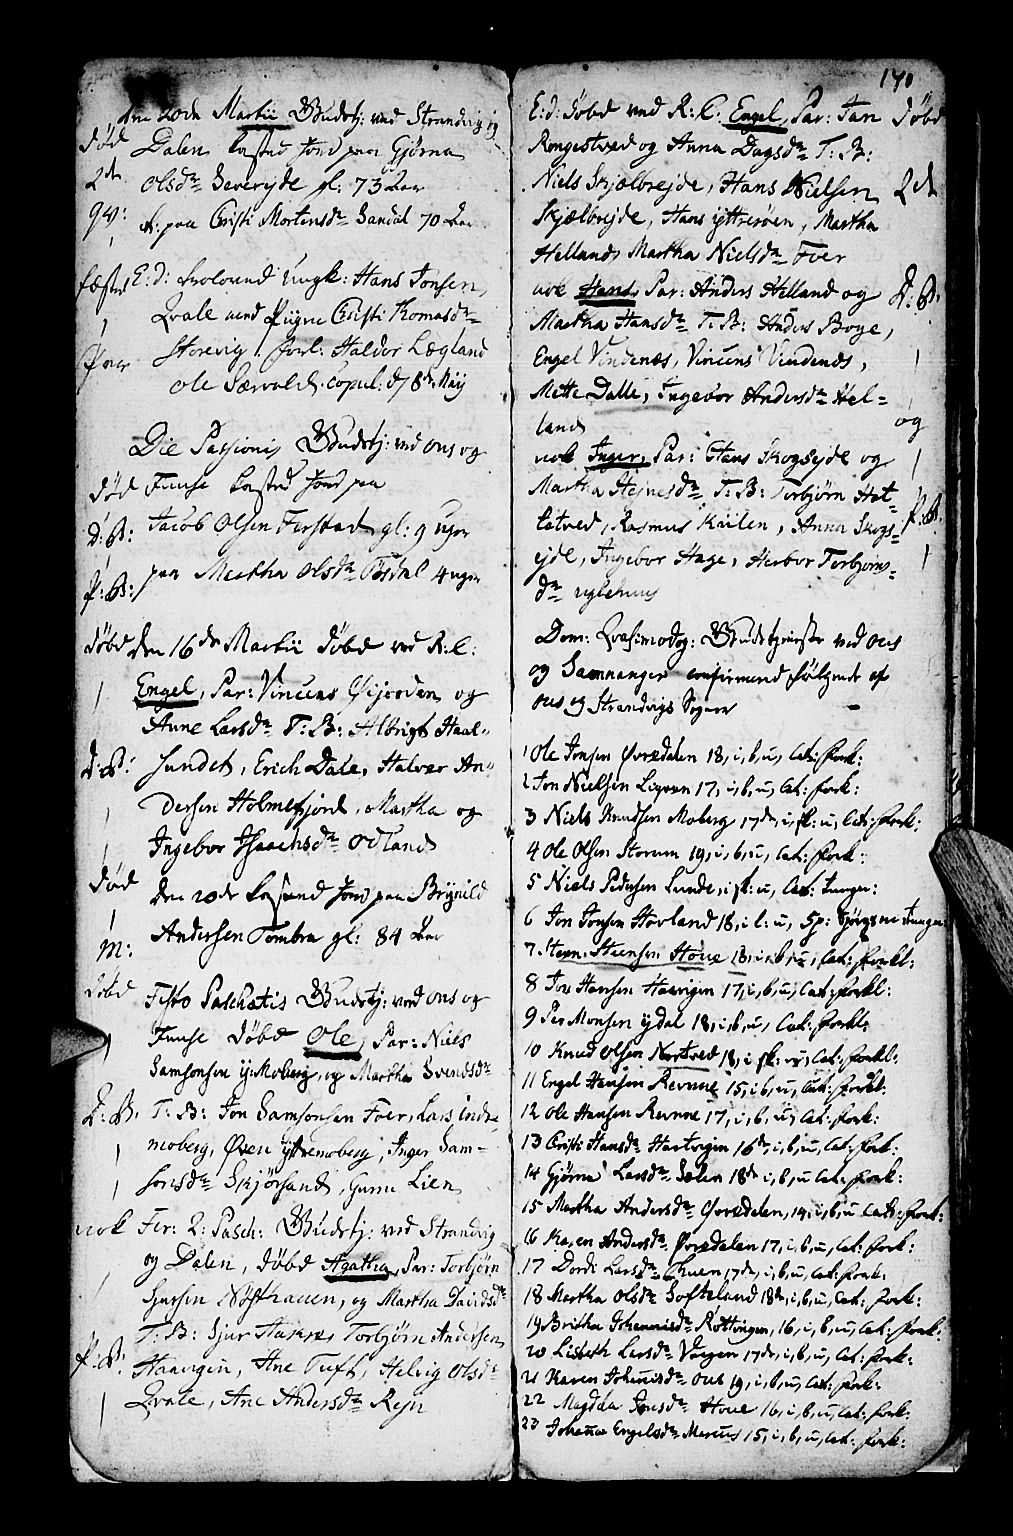 den 20de Martii Gudstj: ved Strandvig og
død Dalen kasted Jord paa Gjørna
2de Olsdr Severejde gl: 73 Aar
qv: it: paa Cristi Mortensdr Sandal 70 Aar
fæsted E: d: trolovend ungk: Hans Jonsen
Qvale med Piigen Cristi Thomasdr
Par Storevig. forl: Haldor Lægland
Ole Særvold. copul: d 8de Maij
Die Passionis Gudstj: ved Ous og
død Fuuse kasted Jord paa
D: B: Jacob Olsen Ferstad gl: 9 uger
P: B: paa Martha Olsdr 4 uger
døbd den 16de Martii døbd ved R: C:
Engel, Par: Vincens Gjerden og
Anne Larsdr T: B: Albrigt Haal-
D: B: sundet, Erich Dale, Halver An-
dersen Holmefjord, Martha og
Ingebor Isaachsdr Odland
død den 20de kastend Jord paa Brynild
M: Andersen Tombra gl: 84 Aar
døbd Festo Paschatis Gudstj: ved Ous og
Fuuse døbd Ole, Par: Niels
Samsonsen y: Moberg, og Martha Svendsdr
D: B. T: B: Jon Samsonsen Foer, Lars indre
moberg, Øven yttremoberg, Inger Sam-
sonsdr Skjørsand, Guru Lien
nok Fer: 2: Pasch: Gudstj: ved Strandvig
og Dalen, døbd Agatha, Par: Torbjørn
Sjursen Nøsthauen, og Martha Davidsdr
T: B: Sjur Torbjørn Andersen
P: B: Haavigen, Ane Tuft, Helvig Olsdr
Qvale, Ane Andersdr Rejn
170
E: d: døbd ved R: C: Engel, Par: Jan døbd
Rongestved og Anna Dagsdr T: B:
Niels Skjælbrejde, Hans Nielsen 2de
Skjælbrejde, Hans yttrerøen, Martha
Helland, Martha Nielsdr Foer
nok Hans, Par: Anders Helland og D: B:
Martha Hansdr T: B: Anders Boge,
Engel Vindenæs, Vincens Vindenæs,
Mette Dalle, Ingebor Andersdr Hel-
land og
nok Inger, Par: Hans Skogsejde og
Martha Stejnesdr T: B: Torbjørn Het-
letved, Rasmus Kuilen, Anna Skogs- P: B:
ejde, Ingebor Hage, Herbor Torbjorns-
dr uglehuus
Dom: Qvasimodog: Gudstjeniste ved Ous
og Samnanger confirmered følgende af
Ous og Strandvigs Sogner
1 Ole Jonsen Øvredalen 18, i, b, u, Cat: fork:
2 Jon Nielsen Ligren 17, i, b, u, Cat: fork:
3 Niels Knudsen Moberg 17de, i, sk: u, Cat: fork:
4 Ole Olsen Storum 19, i, b, u, Cat: fork:
5 Niels Pedersen Lunde, i sk: u, Cat: tunge:
6 Jon Jonsen Hovland 18, i l: u, Sp: Spørgsm: tunge
7 Stejn Steensen Houe 18, i, b, u, Cat: forkl:
8 Jon Hansen Haavigen 17, i, b, u, Cat: forkl:
9 Per Monsen ydal 18, i, b, u, Cat: forkl:
10 Knud Olsen Nortved 18, i, sk: u, Cat: forkl:
11 Engel Hansen Revnne 15, i, b, u, Cat: forkl:
12 Ole Hansen Revnne 17, i, b, u, Cat: fork:
13 Cristi Hansdr Hartvigen 16de, i, b, u, Cat: fork:
14 Gjørna Larsdr Sælen 18de i, b, u Cat: fork:
15 Martha Andersdr Øvredalen, 14, i, b, u Cat: fork:
16 Karen Andersdr Øvredalen 17, i, b, u, Cat: fork:
17 Dordi Larsdr Thuen 17de, i, b, u, Cat: fork:
18 Martha Olsdr Softeland 18de, i, b, u, Cat: fork:
19 Britha Johannisdr Røttingen, 16, i, b, u, Cat: fork:
20 Lisbeth Larsdr Vaagen 17de, i, b, u, Cat: fork:
21 Karen Johannisdr Ous 19, i, b, u, Cat: fork:
22 Magdda Jonsdr Houe 16, i, b, u, Cat: fork:
23 Johanna Engelsdr Marcus 15, i, b, u, Cat: fork: